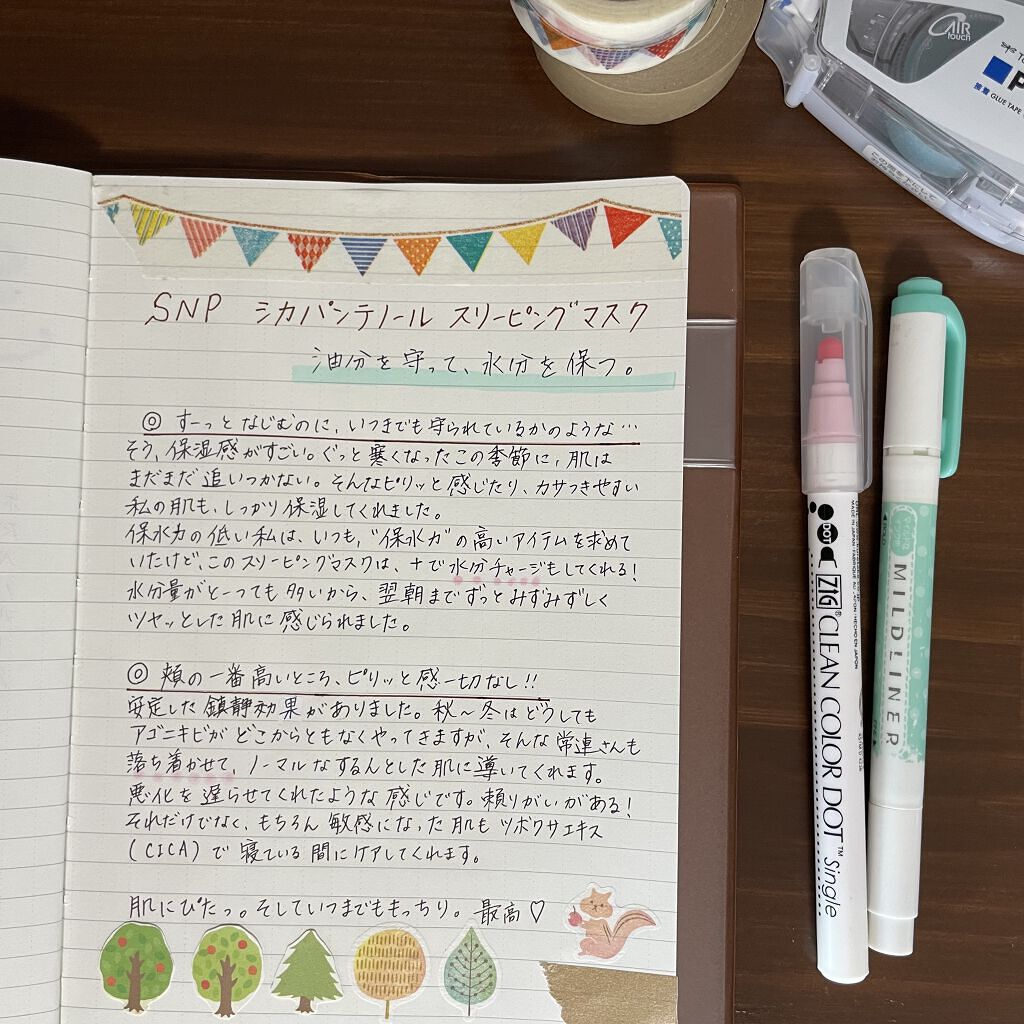 SNP シカパンテノール スリーピングマスク
油分を守って、水分を保つ。
◎ すーっとなじむのに、いつまでも守られているかのような…
そう、保湿感がすごい。ぐっと寒くなったこの季節に、肌は
まだまだ追いつかない。そんなピリッと感じたり、カサつきやすい
私の肌も、しっかり保湿してくれました。
保水力の低い私は、いつも、"保水力"の高いアイテムを求めて
いたけど、このスリーピングマスクは、+で水分チャージもしてくれる!
水分量がとーっても多いから、翌朝までずっとみずみずしく
ツヤッとした肌に感じられました。
◎ 頬の一番高いところ、ピリッと感一切なし!!
安定した鎮静効果がありました。秋~冬はどうしても
アゴニキビがどこからともなくやってきますが、そんな常連さんも
落ち着かせて、ノーマルなするんとした肌に導いてくれます。
悪化を遅らせてくれたような感じです。頼りがいがある!
それだけでなく、もちろん敏感になった肌もツボクサエキス
(CICA)で寝ている間にケアしてくれます。
肌にぴたっ。そしていつまでももっちり。最高♡
AIR touch
GLUE TAPE
DOT
ZIG CLEAN COLOR DOT™ Single
MILDLINER